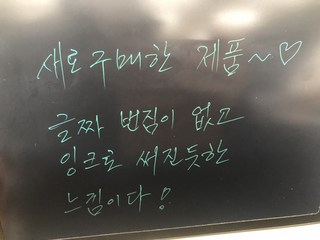 새로구매한 제품~♡
글짜 번짐이 없고
잉크로 써진듯한
느낌이다!